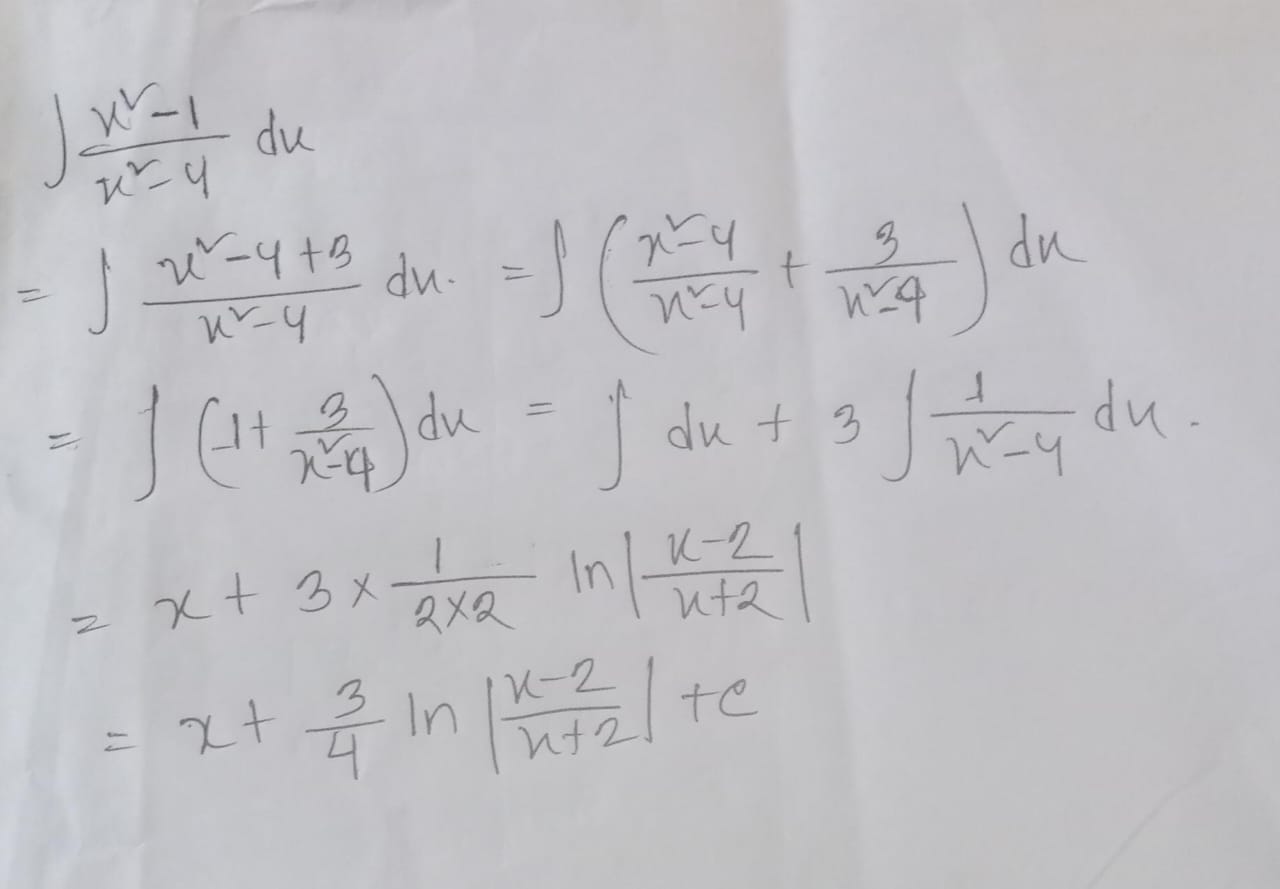 ∫ (x²-1)/(x²-4) dx
= ∫ (x²-4+3)/(x²-4) dx. = ∫ ((x²-4)/(x²-4) + 3/(x²-4)) dx
= ∫ (1+ 3/(x²-4)) dx = ∫ dx + 3 ∫ 1/(x²-4) dx.
= x + 3 × 1/(2×2) ln |(x-2)/(x+2)|
= x + 3/4 ln |(x-2)/(x+2)| + c